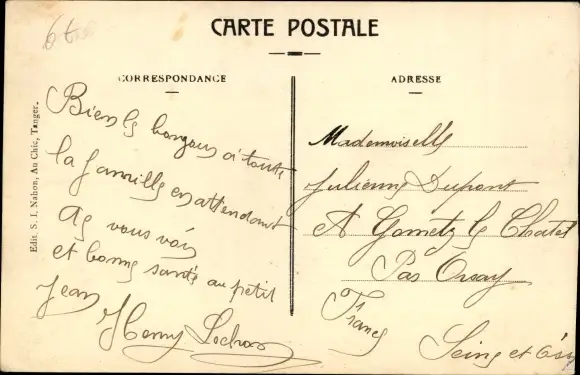 CARTE POSTALE
CORRESPONDANCE
ADRESSE
Edit. S. J. Nahon, Au Chic, Tanger.
Bien le bonjour à toute
la famille en attendant
de vous voir
et bonne santé au petit
Jean
Henry
Mademoiselle
Julienne Dupont
A Gometz le Chatel
Par Orsay
France
Seine et Oise